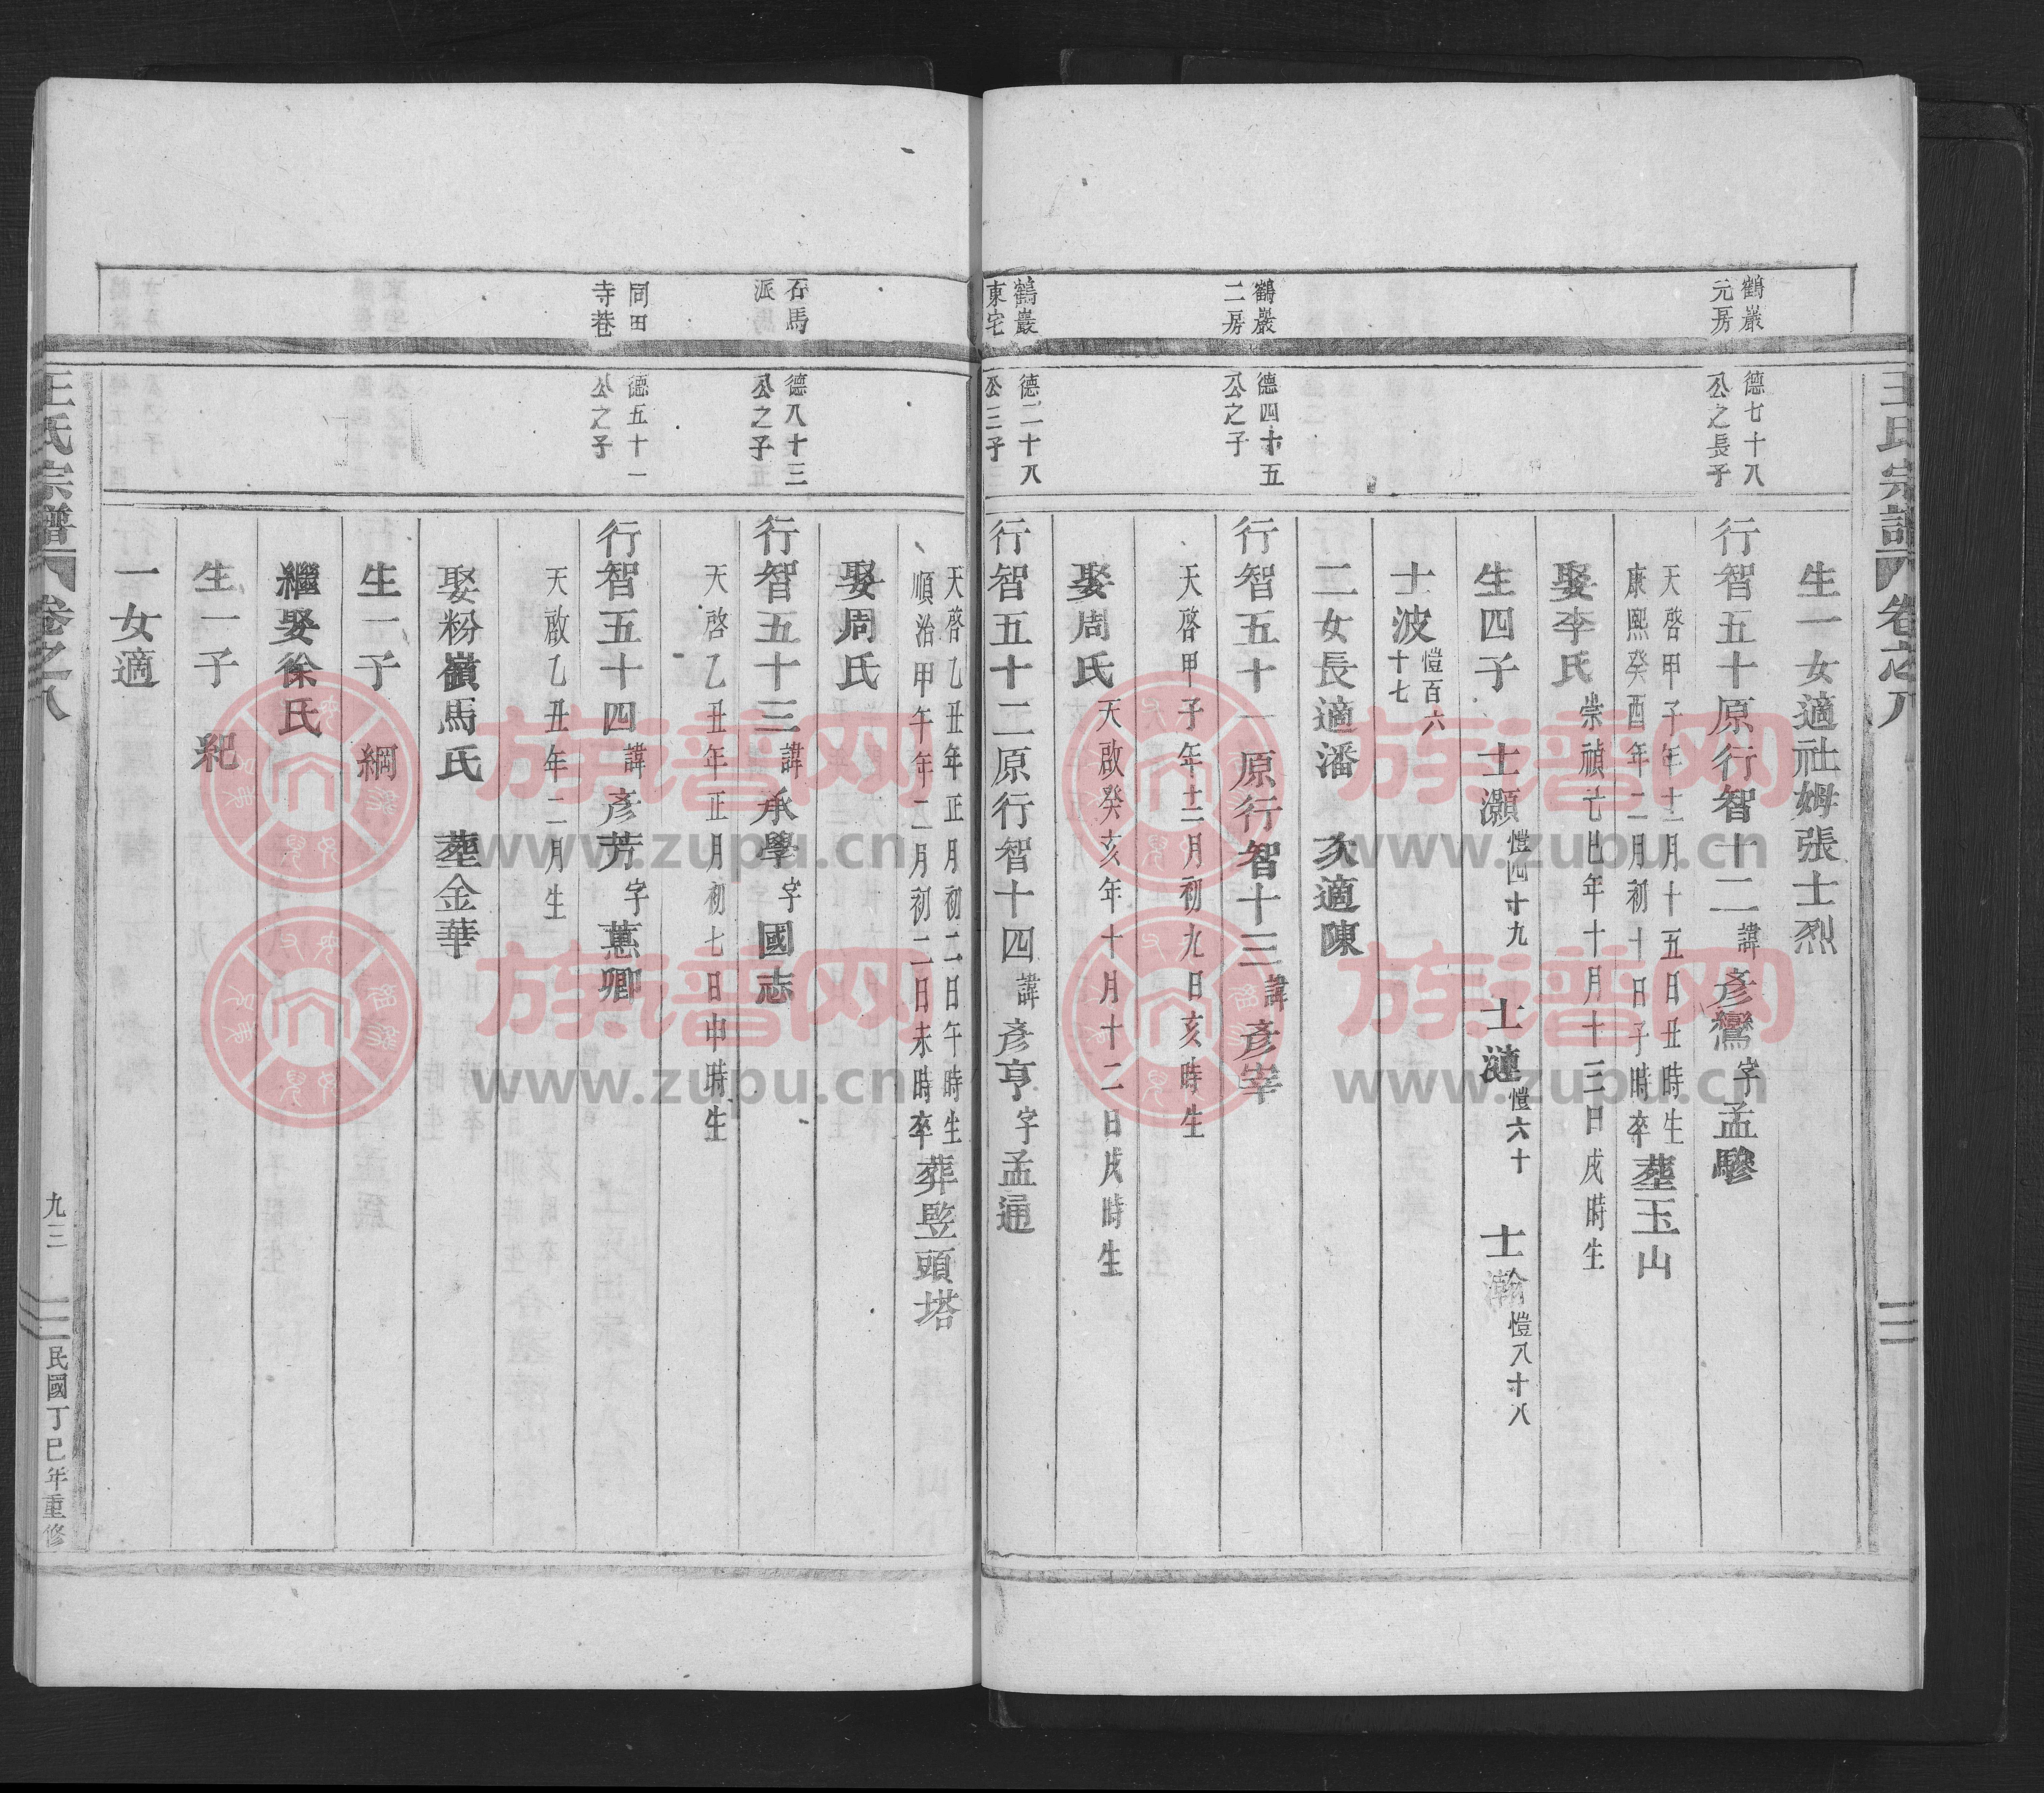 王氏宗譜 卷之八
生一女適社姆張士烈
鶴巖元房
德七十八公之長子
行智五十原行智十二諱彥鸞字孟驂
天啓甲子年十二月十五日丑時生
康熙癸酉年二月初十日子時卒葬玉山
娶李氏崇禎己巳年十月十三日戌時生
生四子 士灝愷四十九 士漣愷六十 士瀚愷八十八
士波愷百六十七
二女長適潘 次適陳
鶴巖二房
德四十五公之子
行智五十一原行智十三諱彥宰
天啓甲子年十二月初九日亥時生
娶周氏天啟癸亥年十月十二日戌時生
鶴巖東宅
德二十八公三子
行智五十二原行智十四諱彥亨字孟通
天啓乙丑年正月初二日午時生
順治甲午年二月初二日未時卒葬竪頭塔
娶周氏
石馬派
德八十三公之子
行智五十三諱承學字國志
天啓乙丑年正月初七日申時生
同田寺巷
德五十一公之子
行智五十四諱彥芳字蕙卿
天啟乙丑年二月生
娶粉嶺馬氏 葬金華
生一子 綱
繼娶徐氏
生一子 紀
一女適
王氏宗譜 卷之八
九三
民國丁巳年重修
族谱网
www.zupu.cn
族谱网
www.zupu.cn
族谱网
www.zupu.cn
族谱网
www.zupu.cn